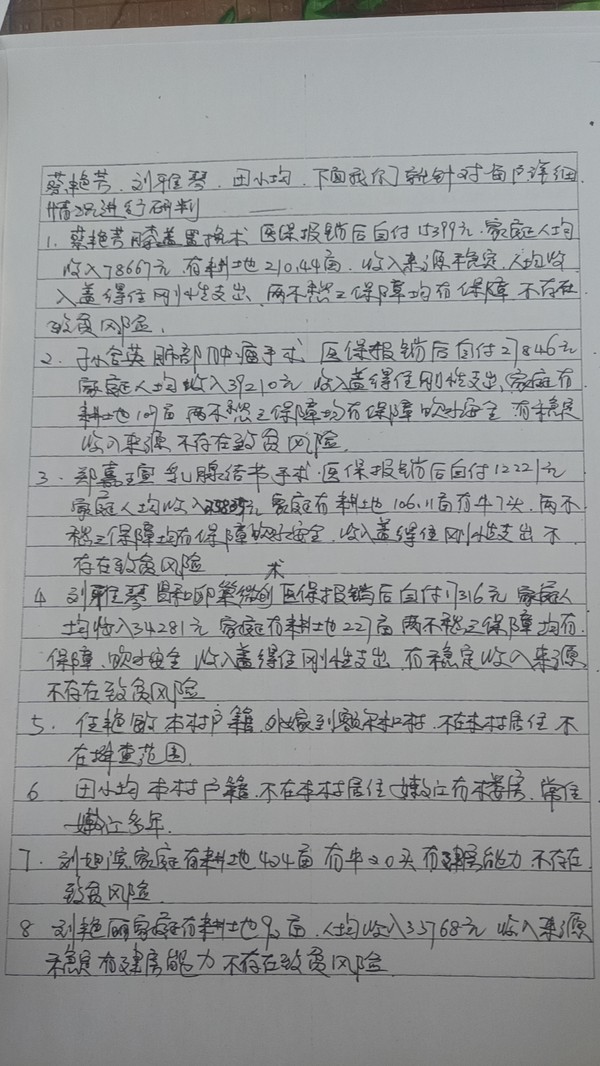 蔡艳芳、刘雅琴、田小均、下面我们就针对每户详细
情况进行研判
1、蔡艳芳膝盖置换术 医保报销后自付15399元、家庭人均
收入78667元、有耕地210.44亩、收入来源稳定、人均收
入盖得住刚性支出、两不愁三保障均有保障 不存在
致贫风险、
2、于水金英 肺部肿瘤手术 医保报销后自付27846元
家庭人均收入39210元 收入盖得住刚性支出、家庭有
耕地109亩 两不愁三保障均有保障饮水安全 有稳定
收入来源 不存在致贫风险、
3、郑嘉宣 乳腺结节手术、医保报销后自付12221元
家庭人均收入 元 家庭有耕地106.11亩有牛7头、两不
愁三保障均有保障饮水安全、收入盖得住刚性支出 不
存在致贫风险
4 刘雅琴 胃和卵巢微创术 医保报销后自付17316元 家庭人
均收入34281元 家庭有耕地227亩 两不愁三保障均有
保障、饮水安全 收入盖得住刚性支出、有稳定收入来源
不存在致贫风险
5、任艳敏 本村户籍、外嫁到额尔和村、不在本村居住 不
在排查范围
6 田小均 本村户籍、不在本村居住 嫩江有楼房、常住
嫩江多年、
7、刘 滨家庭有耕地404亩 有牛20头 有建房能力 不存在
致贫风险、
8 刘艳丽家庭有耕地92亩、人均收入35768元 收入来源
稳定 有建房能力 不存在致贫风险、